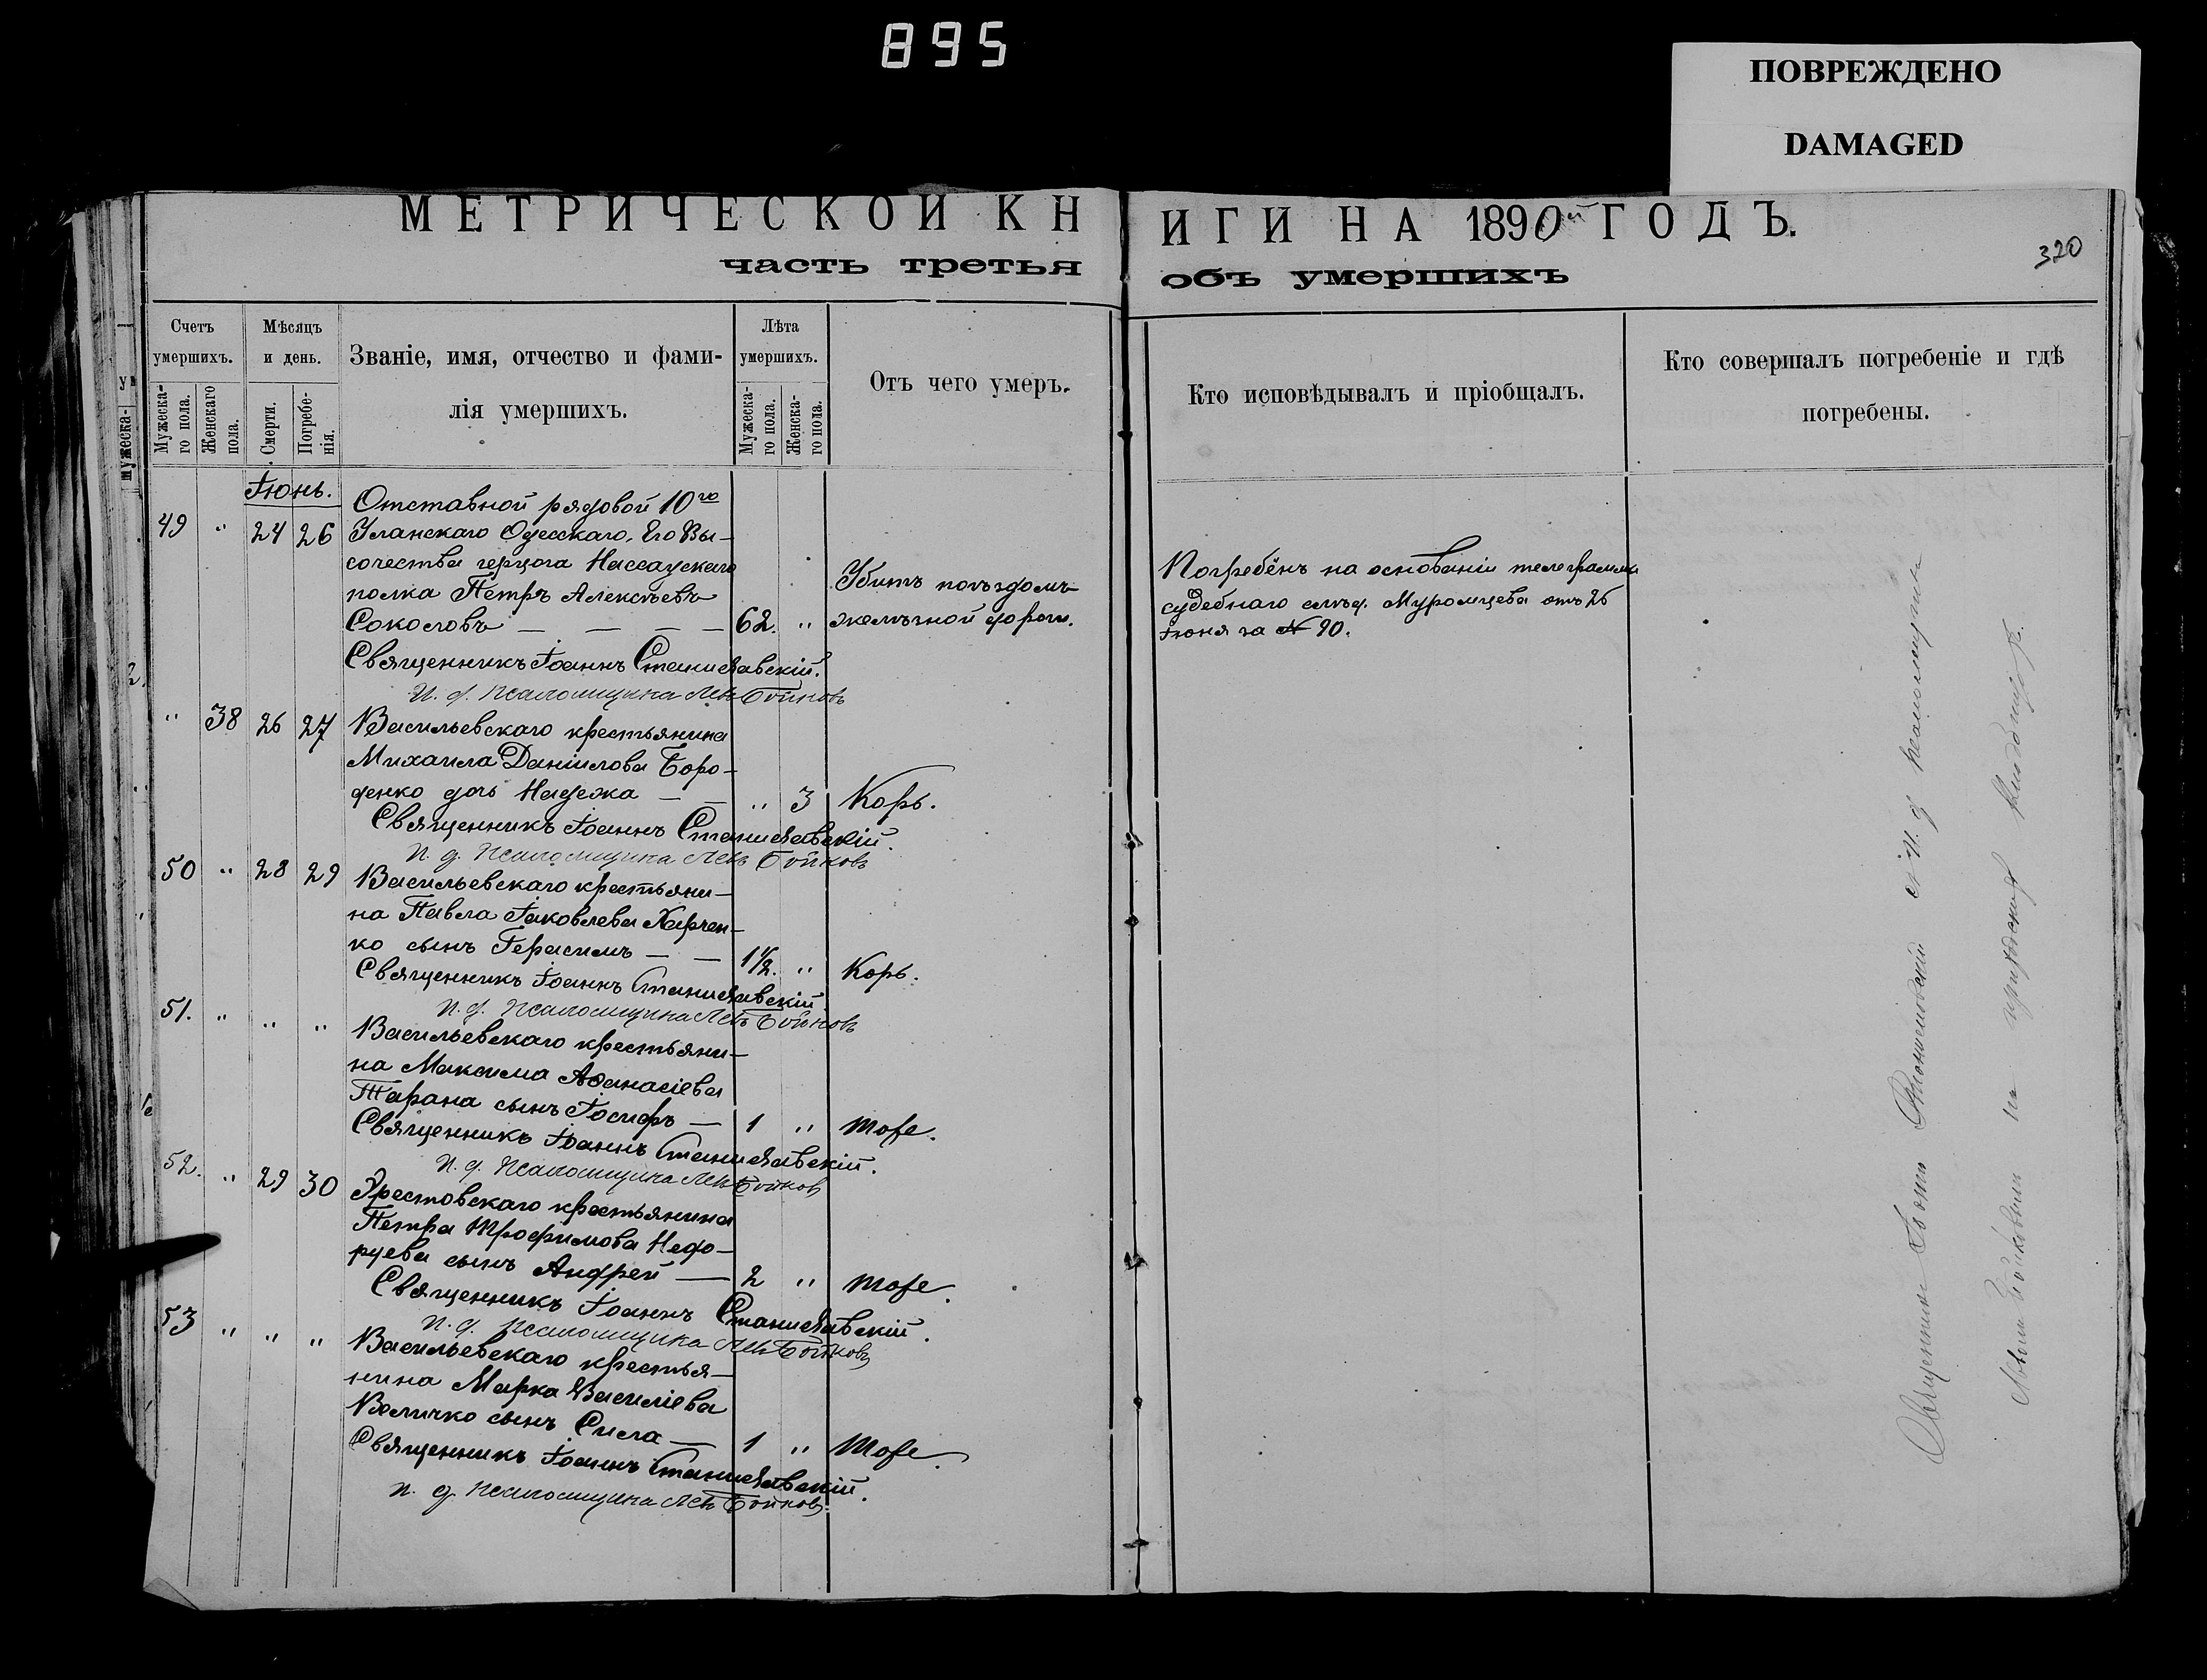 895
ПОВРЕЖДЕНО
DAMAGED
МЕТРИЧЕСКОЙ КНИГИ НА 1890й ГОДЪ.
часть третья объ умершихъ
320
Счетъ умершихъ.
Мужеска-го пола.
Женскаго пола.
Мѣсяцъ и день.
Смерти.
Погребе-нія.
Званіе, имя, отчество и фами-
лія умершихъ.
Лѣта умершихъ.
Мужеска-го пола.
Женска-го пола.
Отъ чего умеръ.
Кто исповѣдывалъ и пріобщалъ.
Кто совершалъ погребеніе и гдѣ
погребены.
Іюнь.
Отставной рядовой 10го
49 " 24 26 Уланскаго Одесскаго, Его Вы-
сочества герцога Нассаускаго
полка Петръ Алексѣевъ
Соколовъ — — — — 62. "
Убитъ поѣздомъ
желѣзной дороги.
Погребёнъ на основаніи телеграммы
судебнаго слѣд. Муромцева отъ 26
Іюня за № 90.
Священникъ Іоаннъ Станиславскій.
И. д. Псаломщика Левъ Бойковъ
" 38 26 27 Васильевскаго крестьянина
Михаила Даніилова Боро-
денко дочь Надежа — — " 3 Корь.
Священникъ Іоаннъ Станиславскій.
И. д. Псаломщика Левъ Бойковъ
50 " 28 29 Васильевскаго крестьяни-
на Павла Іаковлева Харчен-
ко сынъ Герасимъ — — 1½. " Корь.
Священникъ Іоаннъ Станиславскій
И. д. Псаломщика Левъ Бойковъ
51. " " " Васильевскаго крестьяни-
на Максима Аѳанасіева
Тарана сынъ Іосифъ — 1 " тоже.
Священникъ Іоаннъ Станиславскій.
И. д. Псаломщика Левъ Бойковъ
52. " 29 30 Хрестовскаго крестьянина
Петра Трофимова Недо-
руева сынъ Андрей — 2 " тоже.
Священникъ Іоаннъ Станиславскій.
И. д. Псаломщика Левъ Бойковъ
53 " " " Васильевскаго крестья-
нина Марка Василіева
Величко сынъ Сила — 1 " Тоже.
Священникъ Іоаннъ Станиславскій.
И. д. Псаломщика Левъ Бойковъ.
Священникъ Іоаннъ Станиславскій съ И. д. псаломщика
Львомъ Бойковымъ на приходскомъ кладбищѣ.